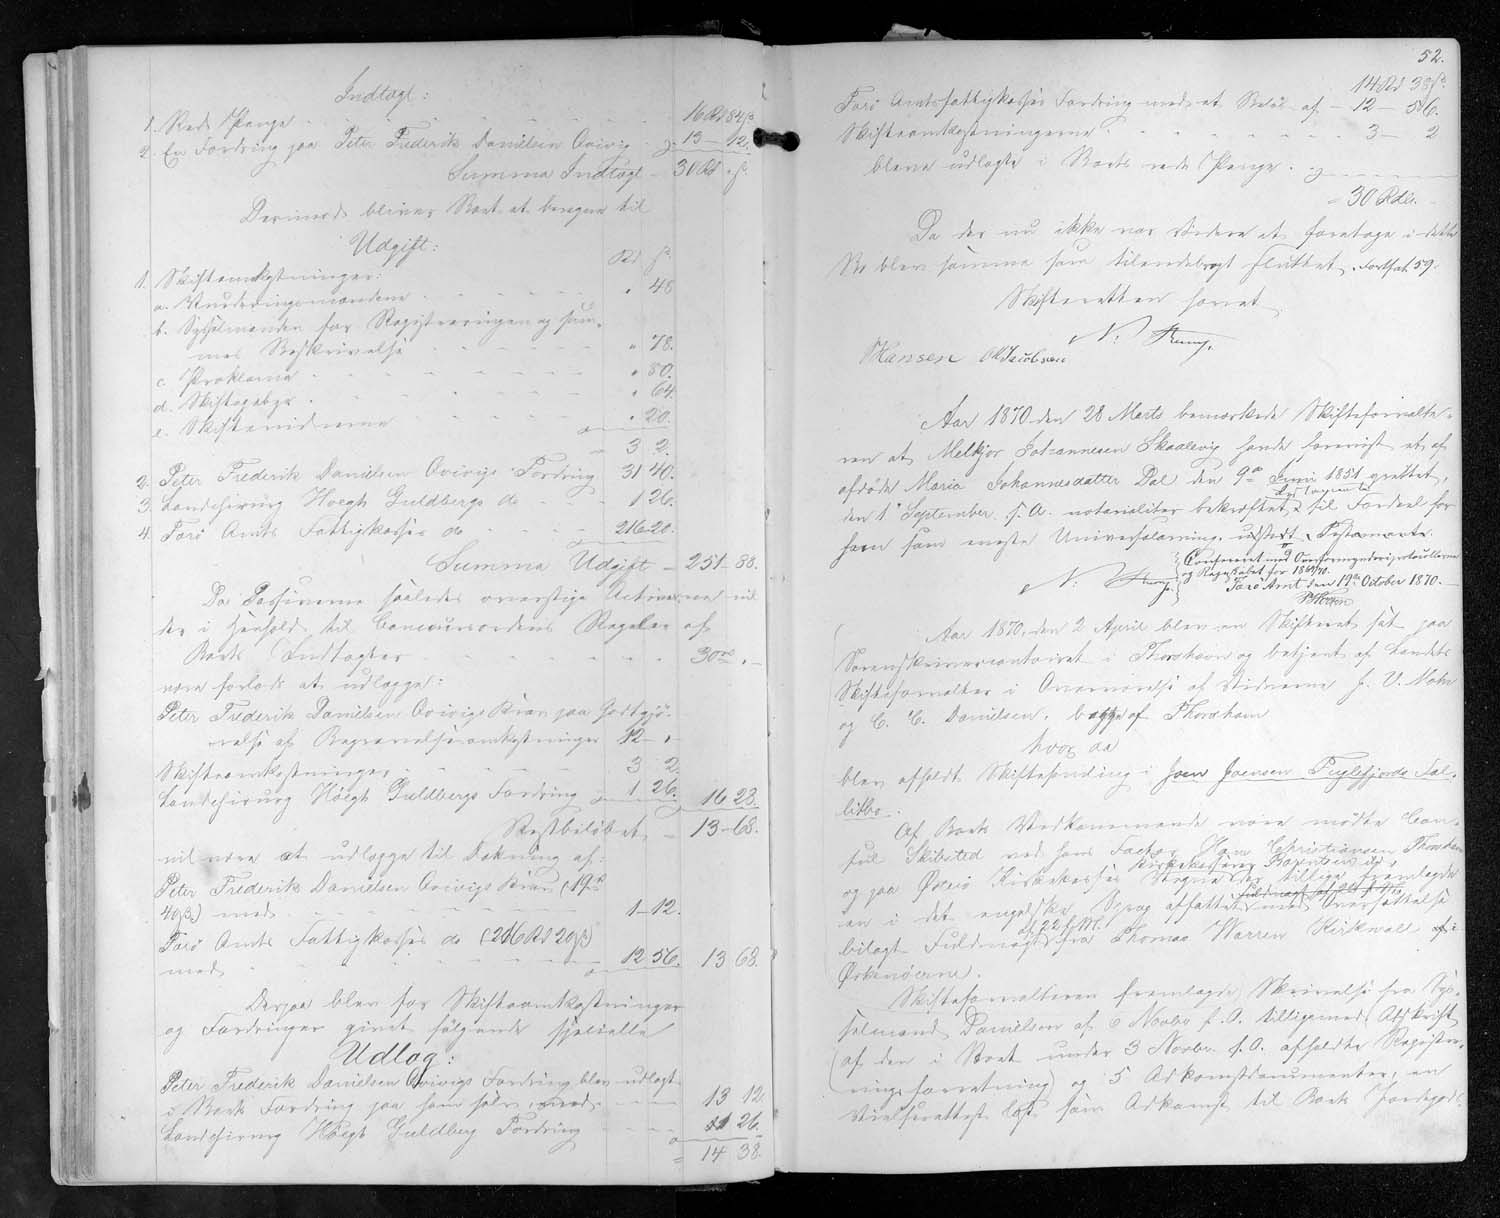 Indtægt:
1. Rede Penge 16 Rd 84 ß
2. En Fordring paa Peter Frederik Danielsen Qvivig 13 — 12.
Summa Indtægt — 30 Rd „ ß.
Derimod bliver Boet at beregne til
Udgift:
Rd ß.
1. Skifteomkostninger:
a. Vurderingsmændene „ 48
b. Sysselmanden for Registreringen og sam-
mes Beskrivelse „ 78.
c. Proklama „ 80.
d. Skiftegebyr „ 64.
e. Skiftevidnerne „ 20.
3 2.
2. Peter Frederik Danielsen Qvivigs Fordring 31 40.
3. Landchirurg Høegh Guldbergs do 1 26.
4. Færø Amts Fattigkasses do 216 20.
Summa Udgift — 251 — 88.
Da Passiverne saaledes overstige Activerne vil
der i Henhold til Concursordens Regler af
Boets Indtægter 30 „ —
være forlods at udlægge:
Peter Frederik Danielsen Qvivigs Krav paa Godtgjö-
relse af Begravelsesomkostninger 12 — „
Skifteomkostninger 3 2.
Landchirurg Høegh Guldbergs Fordring 1 26. 16 28.
Restbeløbet — 13 — 68.
vil være at udlægge til Dækning af:
Peter Frederik Danielsen Qvivigs Krav (19 Rd
40 ß) med 1 — 12.
Færø Amts Fattigkasses do (216 Rd 20 ß)
med 12 56. 13 68.
Derpaa blev for Skifteomkostninger
og Fordringer givet følgende specielle
Udlæg:
Peter Frederik Danielsen Qvivigs Fordring blev udlagt
i Boets Fordring paa ham selv med 13 12.
Landchirurg Høegh Guldberg Fordring 1 26.
14 38.
52.
14 Rd 38 ß.
Færø Amtsfattigkasses Fordring med et Beløb af — 12 — 56.
Skifteomkostningerne 3 — 2
bleve udlagte i Boets rede Penge.
30 Rdlr.
Da der nu ikke var videre at foretage i dette
Bo blev samme som tilendebragt sluttet. Fortsat 59.
Skifteretten hævet
N:
Hansen Jacobsen
Aar 1870 den 28 Marts bemærkede Skifteforvalte-
ren at Melkjor Johannesen Skaalevig havde forevist et af
afdøde Maria Johannesdatter Dal den 9de Juni 1851 oprettet,
den 1 September s. A. notarialiter bekræftet til Fordeel for
ham som eneste Universalarving udstedt Testamente.
N:
Confereret med Overformynderiprotocollerne
og Regnskabet for 1869/70.
Færø Amt den 19de October 1870.
Aar 1870, den 2 April blev en Skifteret sat paa
Sorenskrivercontoiret i Thorshavn og betjent af Landets
Skifteforvalter i Overværelse af Vidnerne J. V. Mohr
og C. C. Danielsen, begge af Thorshavn
hvor da
blev afholdt Skiftesamling i Joen Joensen Fuglefjords Fal-
litbo.
Af Boets Vedkommende vare mødte Con-
sul Skibsted ved hans Factor Hans Christiansen Thorshavn
og paa Østerø Kirkekasses Vegne Kirkekasserer der tillige fremlagde
en i det engelske Sprog affattet med Oversættelse
bilagt Fuldmagt af 22 f. M. fra Thomas Warren Kirkwall i
Ørkenøerne.
Skifteforvalteren fremlagde Skrivelse fra Sys-
selmand Danielsen af 6 Novbr f. A. tilligemed Afskrift
af den i Boet under 3 Novbr. f. A. afholdte Registre-
rings forretning og 5 Adkomstdocumenter, en
Vielsesattest som Adkomst til Boets Jordegods